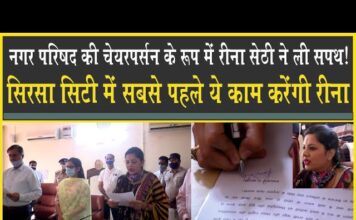 नगर परिषद की चेयरपर्सन के रूप में रीना सेठी ने ली सपथ!
सिरसा सिटी में सबसे पहले ये काम करेंगी रीना